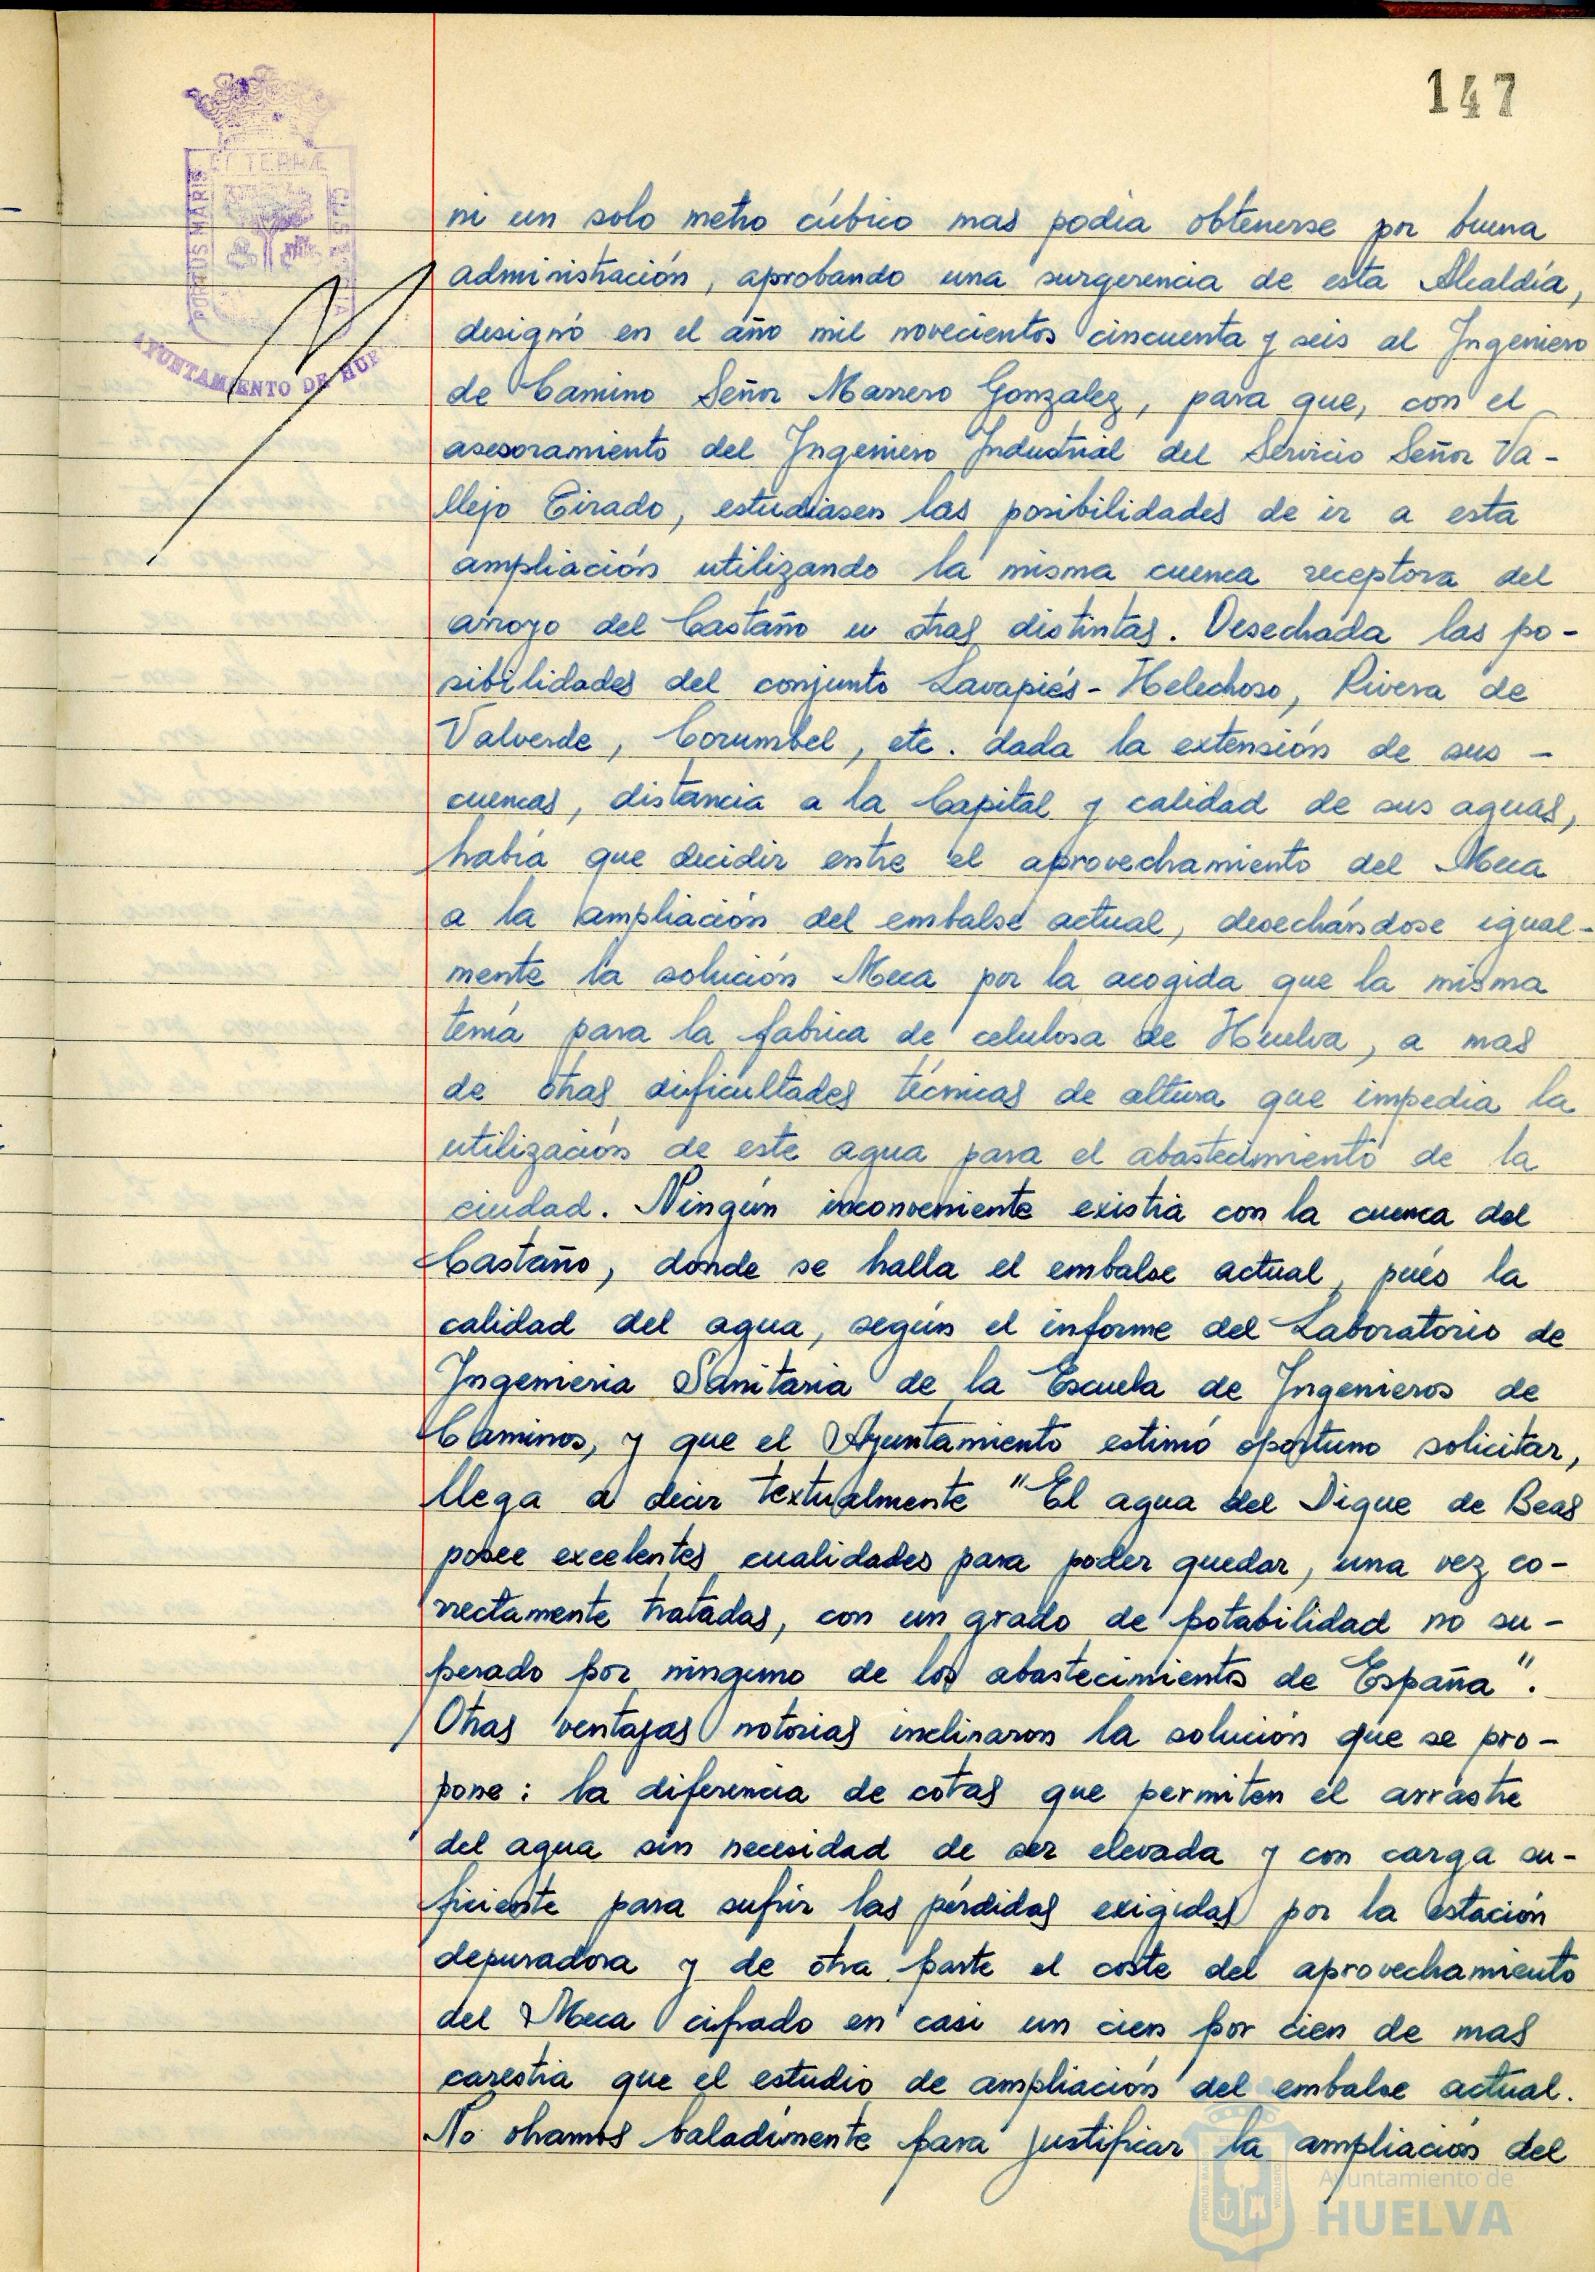 147
ET TERRÆ
PORTUS MARIS
CUSTODIA
AYUNTAMIENTO DE HUE
ni un solo metro cúbico mas podia obtenerse por buena
administración, aprobando una surgerencia de esta Alcaldía,
designó en el año mil novecientos cincuenta y seis al Ingeniero
de Camino Señor Marrero Gonzalez, para que, con el
asesoramiento del Ingeniero Industrial del Servicio Señor Va-
llejo Tirado, estudiasen las posibilidades de ir a esta
ampliación utilizando la misma cuenca receptora del
arroyo del Castaño u otras distintas. Desechada las po-
sibilidades del conjunto Lavapiés-Helechoso, Rivera de
Valverde, Corumbel, etc. dada la extensión de sus -
cuencas, distancia a la Capital y calidad de sus aguas,
había que decidir entre el aprovechamiento del Meca
a la ampliación del embalse actual, desechándose igual-
mente la solución Meca por la acogida que la misma
tenía para la fabrica de celulosa de Huelva, a mas
de otras dificultades técnicas de altura que impedia la
utilización de este agua para el abastecimiento de la
ciudad. Ningún inconveniente existia con la cuenca del
Castaño, donde se halla el embalse actual, pués la
calidad del agua, según el informe del Laboratorio de
Ingenieria Sanitaria de la Escuela de Ingenieros de
Caminos, y que el Ayuntamiento estimó oportuno solicitar,
llega a decir textualmente "El agua del Dique de Beas
posee excelentes cualidades para poder quedar, una vez co-
rrectamente tratadas, con un grado de potabilidad no su-
perado por ninguno de los abastecimientos de España".
Otras ventajas notorias inclinaron la solución que se pro-
pone: la diferencia de cotas que permiten el arrastre
del agua sin necesidad de ser elevada y con carga su-
ficiente para sufrir las pérdidas exigidas por la estación
depuradora y de otra parte el coste del aprovechamiento
del Meca cifrado en casi un cien por cien de mas
carestia que el estudio de ampliación del embalse actual.
No obramos baladimente para justificar la ampliación del
Ayuntamiento de
HUELVA